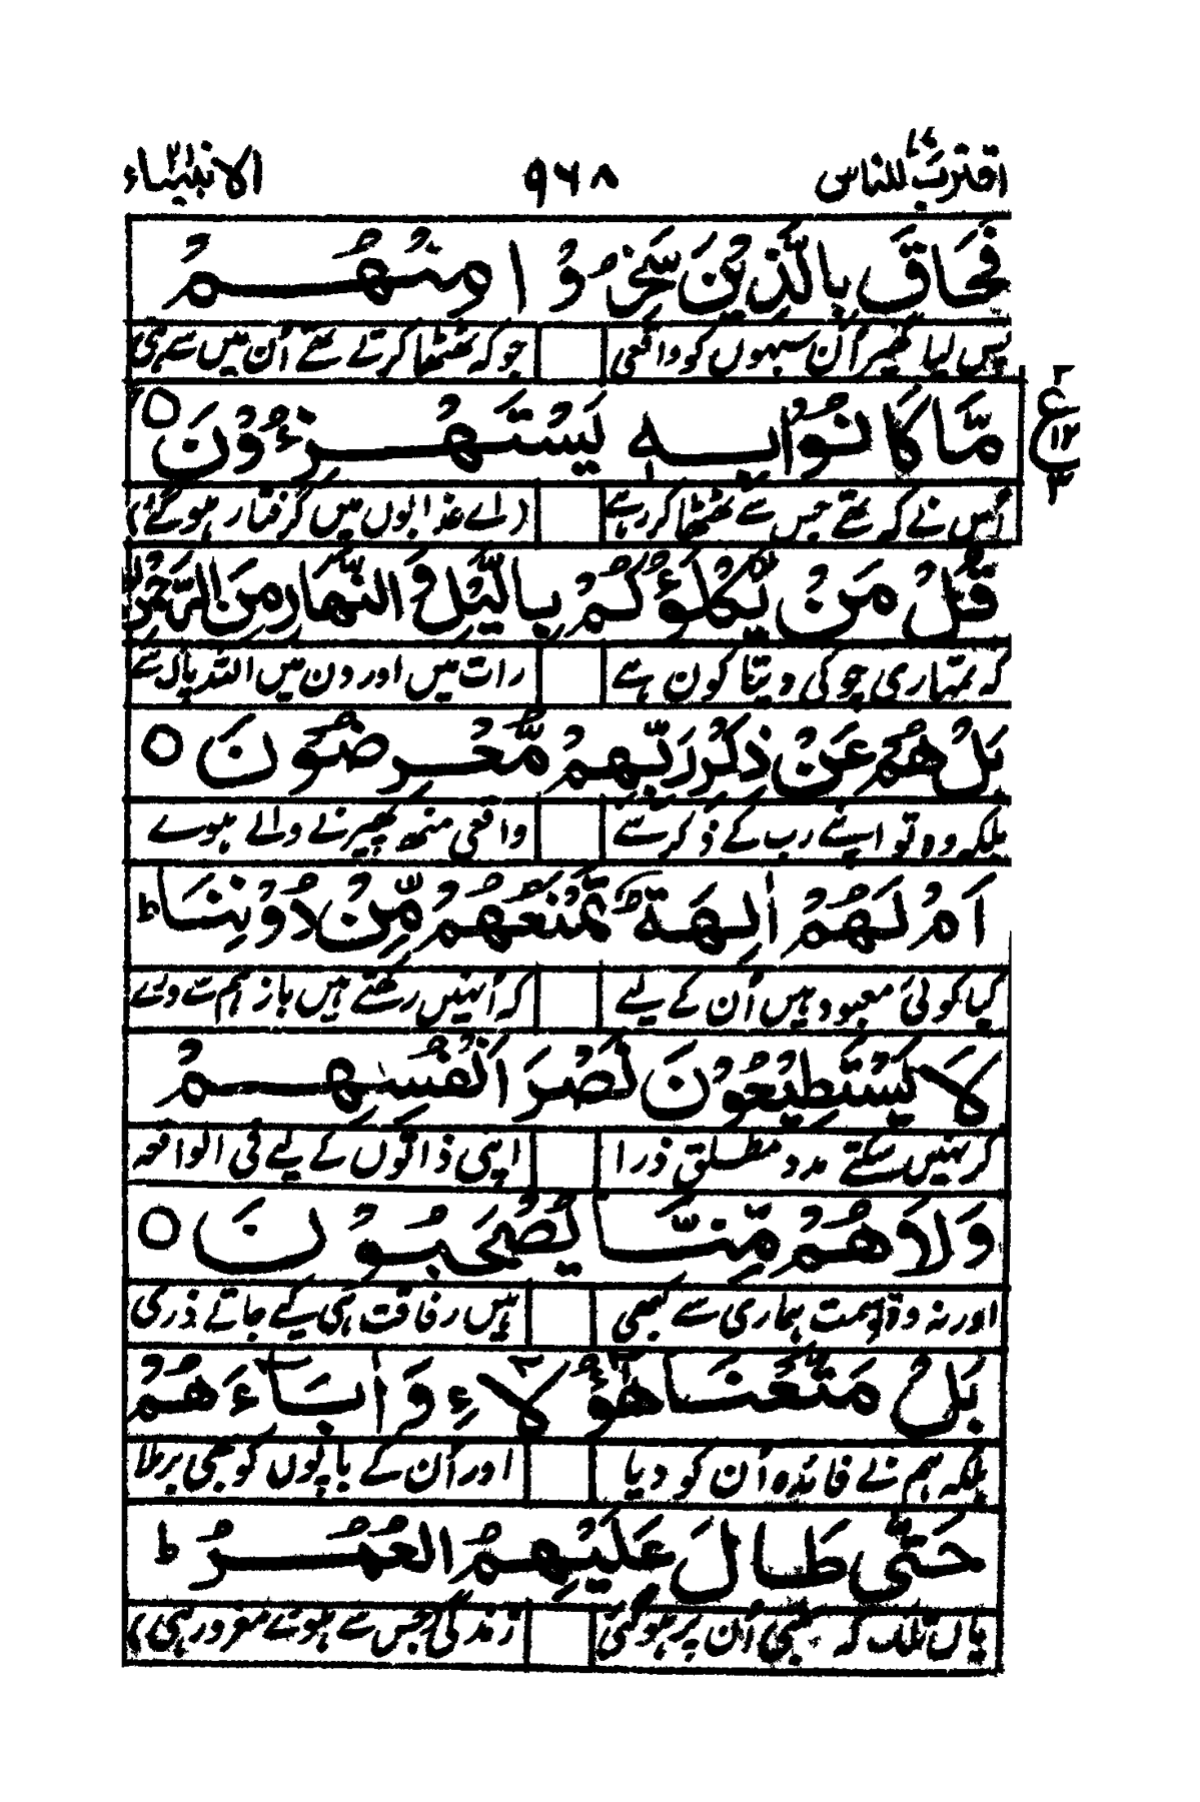 اقترب للناس ۱۷ ۹۶۸ الانبیاء ۲۱
فَحَاقَ بِالَّذِيْنَ سَخِرُوْا مِنْهُمْ
پس لیا گھیر اُن سبھوں کو واقعی جو کہ ٹھٹھا کرتے تھے اُن میں سے ہی
مَّا كَانُوْا بِهٖ يَسْتَهْزِءُوْنَ ۝
اُس نے کہ تھے جس سے ٹھٹھا کر رہے (اے عذابوں میں گرفتار ہو گئے)
ع ۳ ۱۲ ۳
قُلْ مَنْ يَّكْلَؤُكُمْ بِالَّيْلِ وَ النَّهَارِ مِنَ الرَّحْمٰنِ
کہ تمہاری چوکی دیتا کون ہے رات میں اور دن میں اللہ پاک سے
بَلْ هُمْ عَنْ ذِكْرِ رَبِّهِمْ مُّعْرِضُوْنَ ۝
بلکہ وہ تو اپنے رب کے ذکر سے واقعی منھ پھیرنے والے ہوے
اَمْ لَهُمْ اٰلِهَةٌ تَمْنَعُهُمْ مِّنْ دُوْنِنَا ؕ
کیا کوئی معبود ہیں اُن کے لیے کہ اُنہیں رکھتے ہیں باز ہم سے ورے
لَا يَسْتَطِيْعُوْنَ نَصْرَ اَنْفُسِهِمْ
کر نہیں سکتے مدد مطلق ذرا اپنی ذاتوں کے لیے فی الواقعہ
وَلَا هُمْ مِّنَّا يُصْحَبُوْنَ ۝
اور نہ وہ سمت ہماری سے کبھی ہیں رفاقت ہی کیے جاتے ذری
بَلْ مَتَّعْنَا هٰٓؤُلَآءِ وَ اٰبَآءَهُمْ
بلکہ ہم نے فائدہ اُن کو دیا اور اُن کے باپوں کو بھی برملا
حَتّٰى طَالَ عَلَيْهِمُ الْعُمُرُ ؕ
یاں تلک کہ لمبی اُن پر ہو گئی زندگی (جس سے ہوئے مغرور ہی)